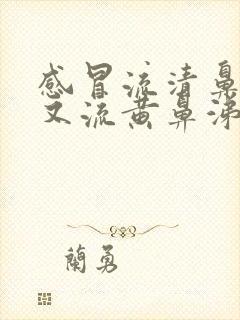 感冒流清鼻
又流黄鼻涕
蘭勇